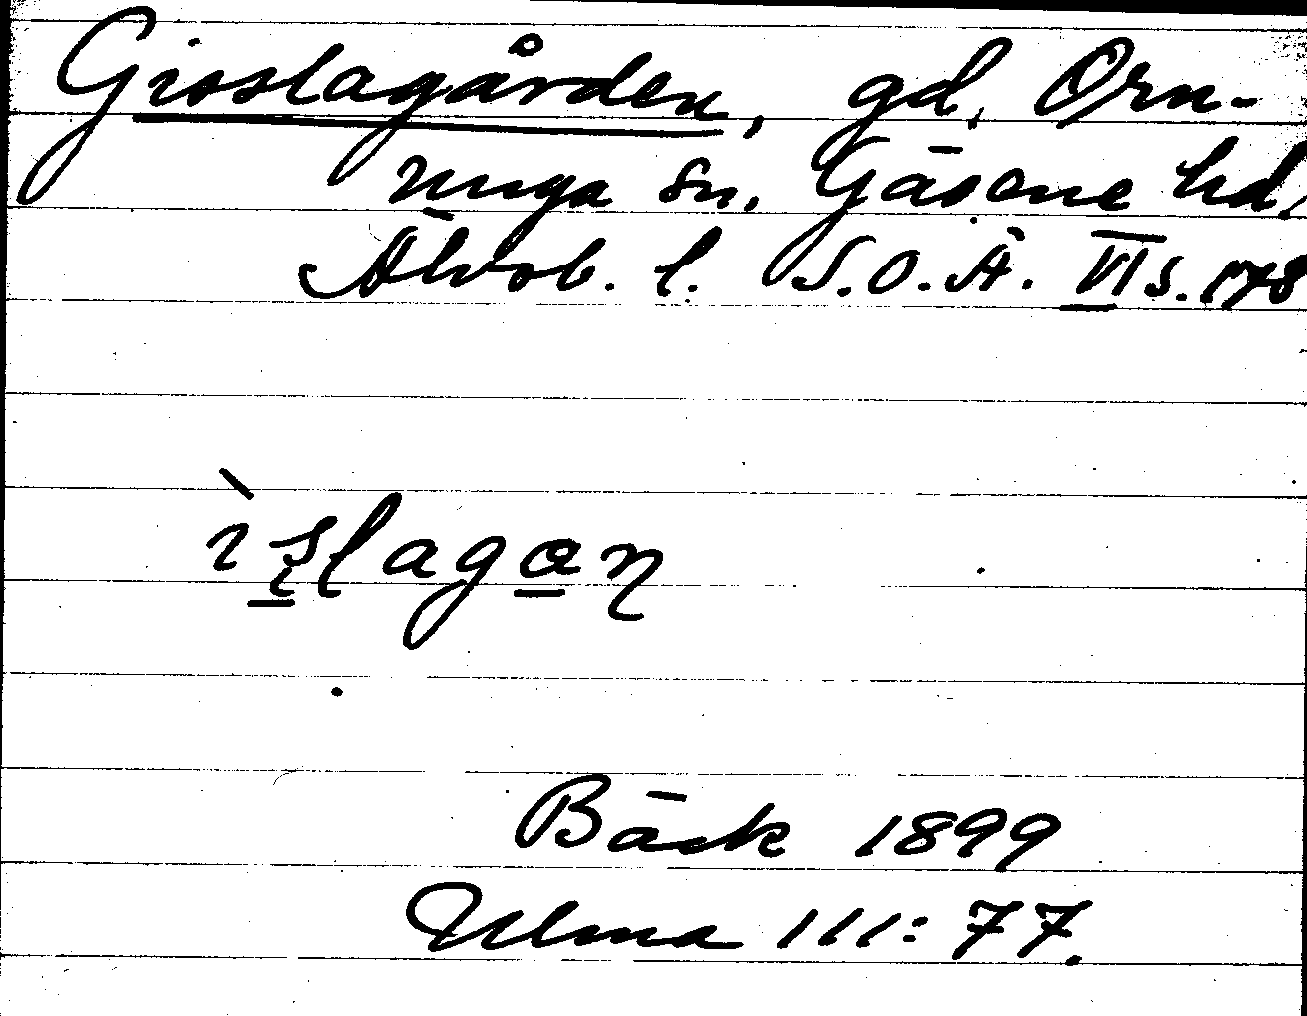 Gisslagården, gd, Orn-
nunga sn. Gäsene hd,
Älvsb. l. S.O.Ä. VI s. 178
ìslagan
Bäck 1899
Ulma 111:77.